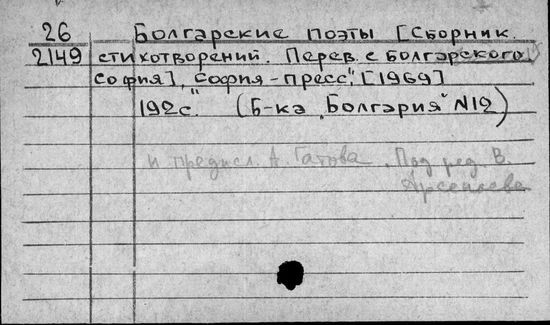 26 Болгарские поэты [Сборник.
2149 стихотворений. Перев. с болгарского
София], "София-пресс", [1969]
192с. (Б-ка "Болгария" N12)
и предисл. А. Гатова. Под ред. В.
Арсеньева